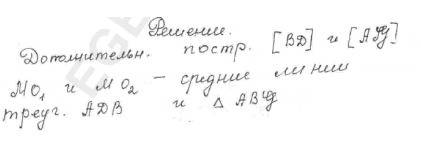 Решение.
Дополнительн. постр. [BD] и [AF]
MO₁ и MO₂ – средние линии
треуг. ADB и △ ABF